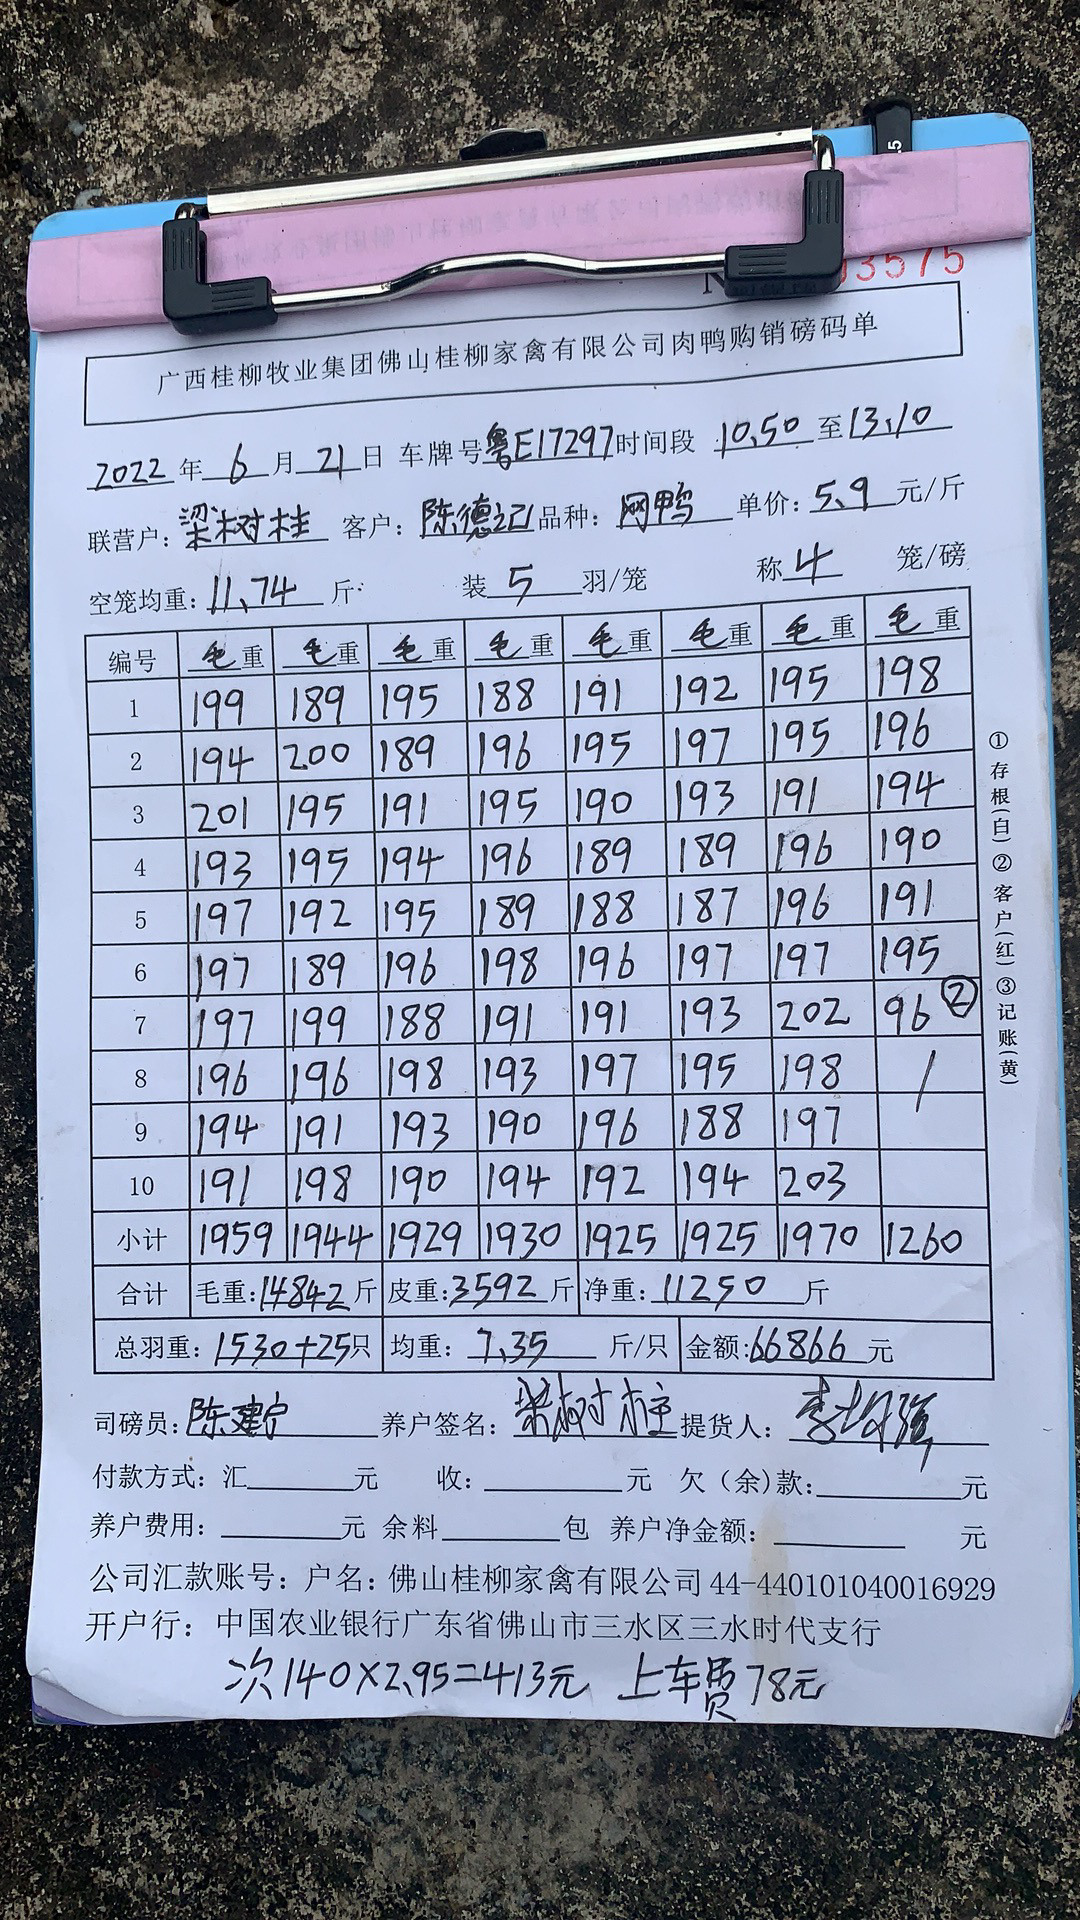 3575
广西桂柳牧业集团佛山桂柳家禽有限公司肉鸭购销磅码单
2022 年 6 月 21 日 车牌号 粤E17297 时间段 10.50 至 13.10
联营户: 梁树柱 客户: 陈德记 品种: 网鸭 单价: 5.9 元/斤
空笼均重: 11.74 斤 装 5 羽/笼 称 4 笼/磅
编号 毛重 毛重 毛重 毛重 毛重 毛重 毛重 毛重
1 199 189 195 188 191 192 195 198
2 194 200 189 196 195 197 195 196
3 201 195 191 195 190 193 191 194
4 193 195 194 196 189 189 196 190
5 197 192 195 189 188 187 196 191
6 197 189 196 198 196 197 197 195
7 197 199 188 191 191 193 202 96 ②
8 196 196 198 193 197 195 198 /
9 194 191 193 190 196 188 197
10 191 198 190 194 192 194 203
小计 1959 1944 1929 1930 1925 1925 1970 1260
合计 毛重: 14842 斤 皮重: 3592 斤 净重: 11250 斤
总羽重: 1530+25 只 均重: 7.35 斤/只 金额: 66866 元
司磅员: 陈建宁 养户签名: 梁树柱 提货人:
付款方式: 汇 元 收: 元 欠（余)款: 元
养户费用: 元 余料 包 养户净金额: 元
公司汇款账号: 户名: 佛山桂柳家禽有限公司 44-440101040016929
开户行: 中国农业银行广东省佛山市三水区三水时代支行
次140×2.95=413元 上车费78元
①存根(白)②客户(红)③记账(黄)